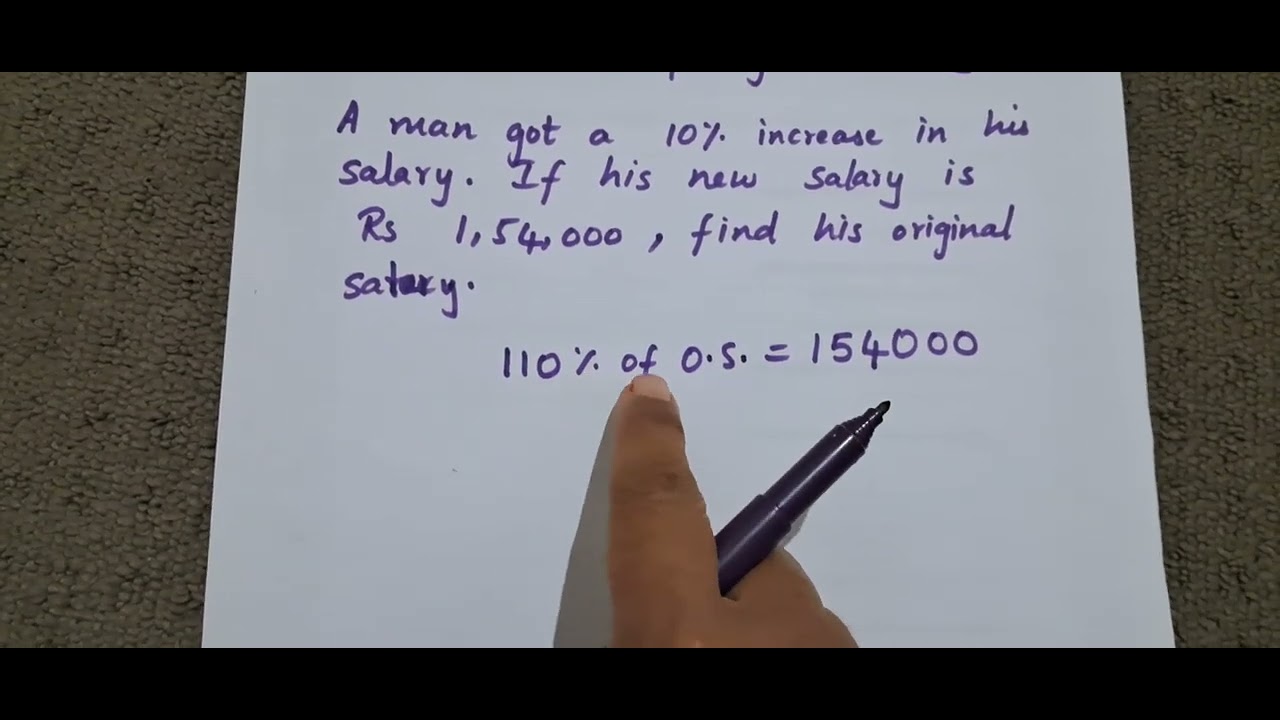 A man got a 10% increase in his
salary. If his new salary is
Rs 1,54,000, find his original
salary.
110% of o.s. = 154000